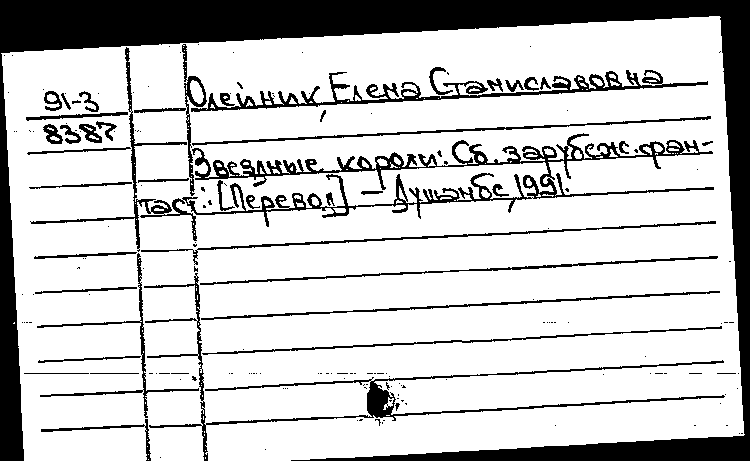 91-3
8387
Олейник, Елена Станиславовна
Звездные короли: Сб. зарубеж. фан-
таст.: [Перевод]. – Душанбе, 1991.